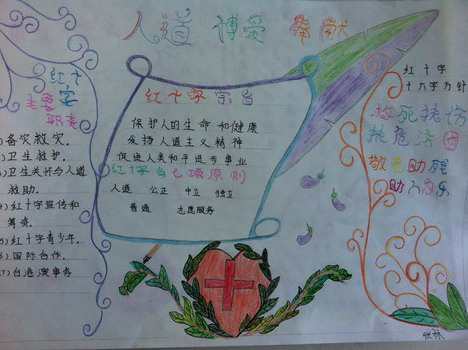 人道 博爱 奉献
红十
字会
主要
职责
备灾救灾.
卫生救护.
卫生关怀与人道
救助.
红十字宣传和
筹资.
红十字青少年.
国际合作.
台港澳事务
红十字宗旨
保护人的生命和健康
发扬人道主义精神
促进人类和平进步事业
红十字会七项原则
人道 公正 中立 独立
普遍 志愿服务
红十字
十六字方针
救死扶伤
扶危济困
敬老助残
助人为乐